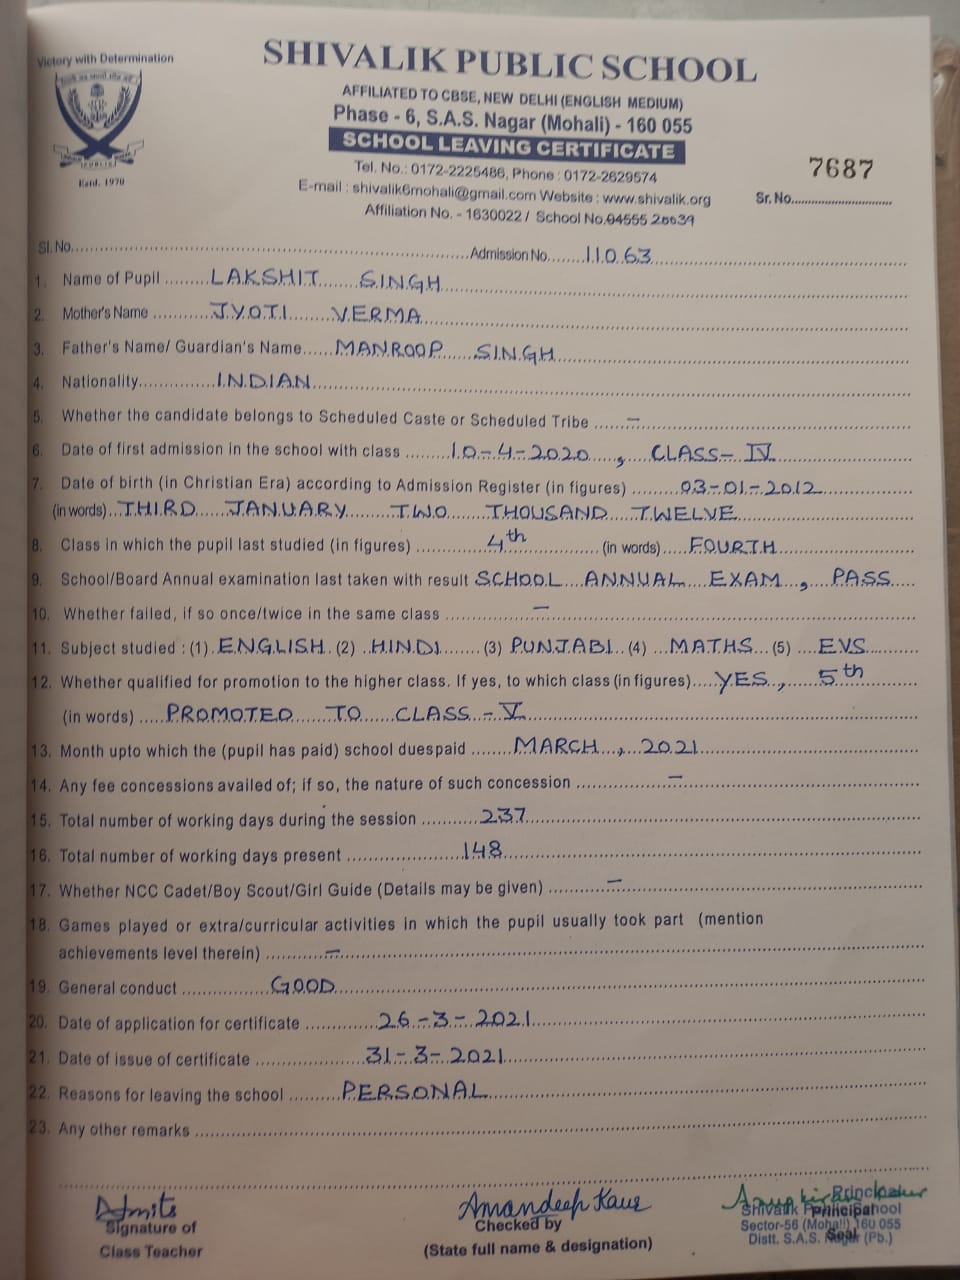 Victory with Determination
Estd. 1970
SHIVALIK PUBLIC SCHOOL
AFFILIATED TO CBSE, NEW DELHI (ENGLISH MEDIUM)
Phase - 6, S.A.S. Nagar (Mohali) - 160 055
SCHOOL LEAVING CERTIFICATE
Tel. No.: 0172-2225486, Phone : 0172-2629574
E-mail : shivalik6mohali@gmail.com Website : www.shivalik.org
Affiliation No. - 1630022 / School No.04555 20039
7687
Sr. No.
Sl. No. Admission No. 11063
1. Name of Pupil LAKSHIT SINGH
2. Mother's Name JYOTI VERMA
3. Father's Name/ Guardian's Name MANROOP SINGH
4. Nationality INDIAN
5. Whether the candidate belongs to Scheduled Caste or Scheduled Tribe —
6. Date of first admission in the school with class 10-4-2020, CLASS- IV
7. Date of birth (in Christian Era) according to Admission Register (in figures) 03-01-2012
(in words) THIRD JANUARY TWO THOUSAND TWELVE
8. Class in which the pupil last studied (in figures) 4th (in words) FOURTH
9. School/Board Annual examination last taken with result SCHOOL ANNUAL EXAM, PASS
10. Whether failed, if so once/twice in the same class —
11. Subject studied : (1) ENGLISH (2) HINDI (3) PUNJABI (4) MATHS (5) EVS
12. Whether qualified for promotion to the higher class. If yes, to which class (in figures) YES, 5th
(in words) PROMOTED TO CLASS - V
13. Month upto which the (pupil has paid) school duespaid MARCH, 2021
14. Any fee concessions availed of; if so, the nature of such concession —
15. Total number of working days during the session 237
16. Total number of working days present 148
17. Whether NCC Cadet/Boy Scout/Girl Guide (Details may be given) —
18. Games played or extra/curricular activities in which the pupil usually took part (mention
achievements level therein) —
19. General conduct GOOD
20. Date of application for certificate 26-3-2021
21. Date of issue of certificate 31-3-2021
22. Reasons for leaving the school PERSONAL
23. Any other remarks
Signature of
Class Teacher
Amandeep Kaur
Checked by
(State full name & designation)
Principal
Shivalik Public School
Principal
Sector-56 (Mohali) 160 055
Seal
Distt. S.A.S. Nagar (Pb.)